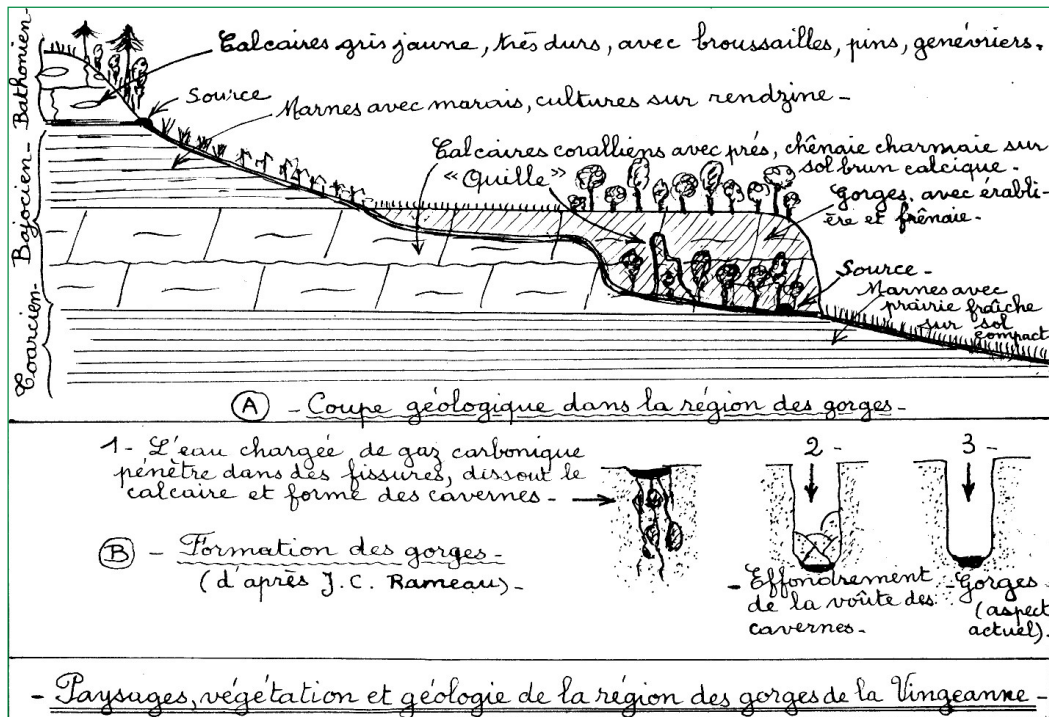 Bathonien-
Bajocien-
Toarcien-
Calcaires gris jaune, très durs, avec broussailles, pins, genévriers.
Source
Marnes avec marais, cultures sur rendzine-
Calcaires coralliens avec prés, chênaie charmaie sur
sol brun calcique-
"Quille"
Gorges, avec érabli-
ère et frênaie-
Source-
Marnes avec
prairie fraîche
sur sol
compact
A - Coupe géologique dans la région des gorges-
1- L'eau chargée de gaz carbonique
pénètre dans des fissures, dissout le
calcaire et forme des cavernes-
B - Formation des gorges-
(d'après J.C. Rameau)-
2-
- Effondrement
de la voûte des
cavernes-
3-
-Gorges
(aspect
actuel).
- Paysages, végétation et géologie de la région des gorges de la Vingeanne -